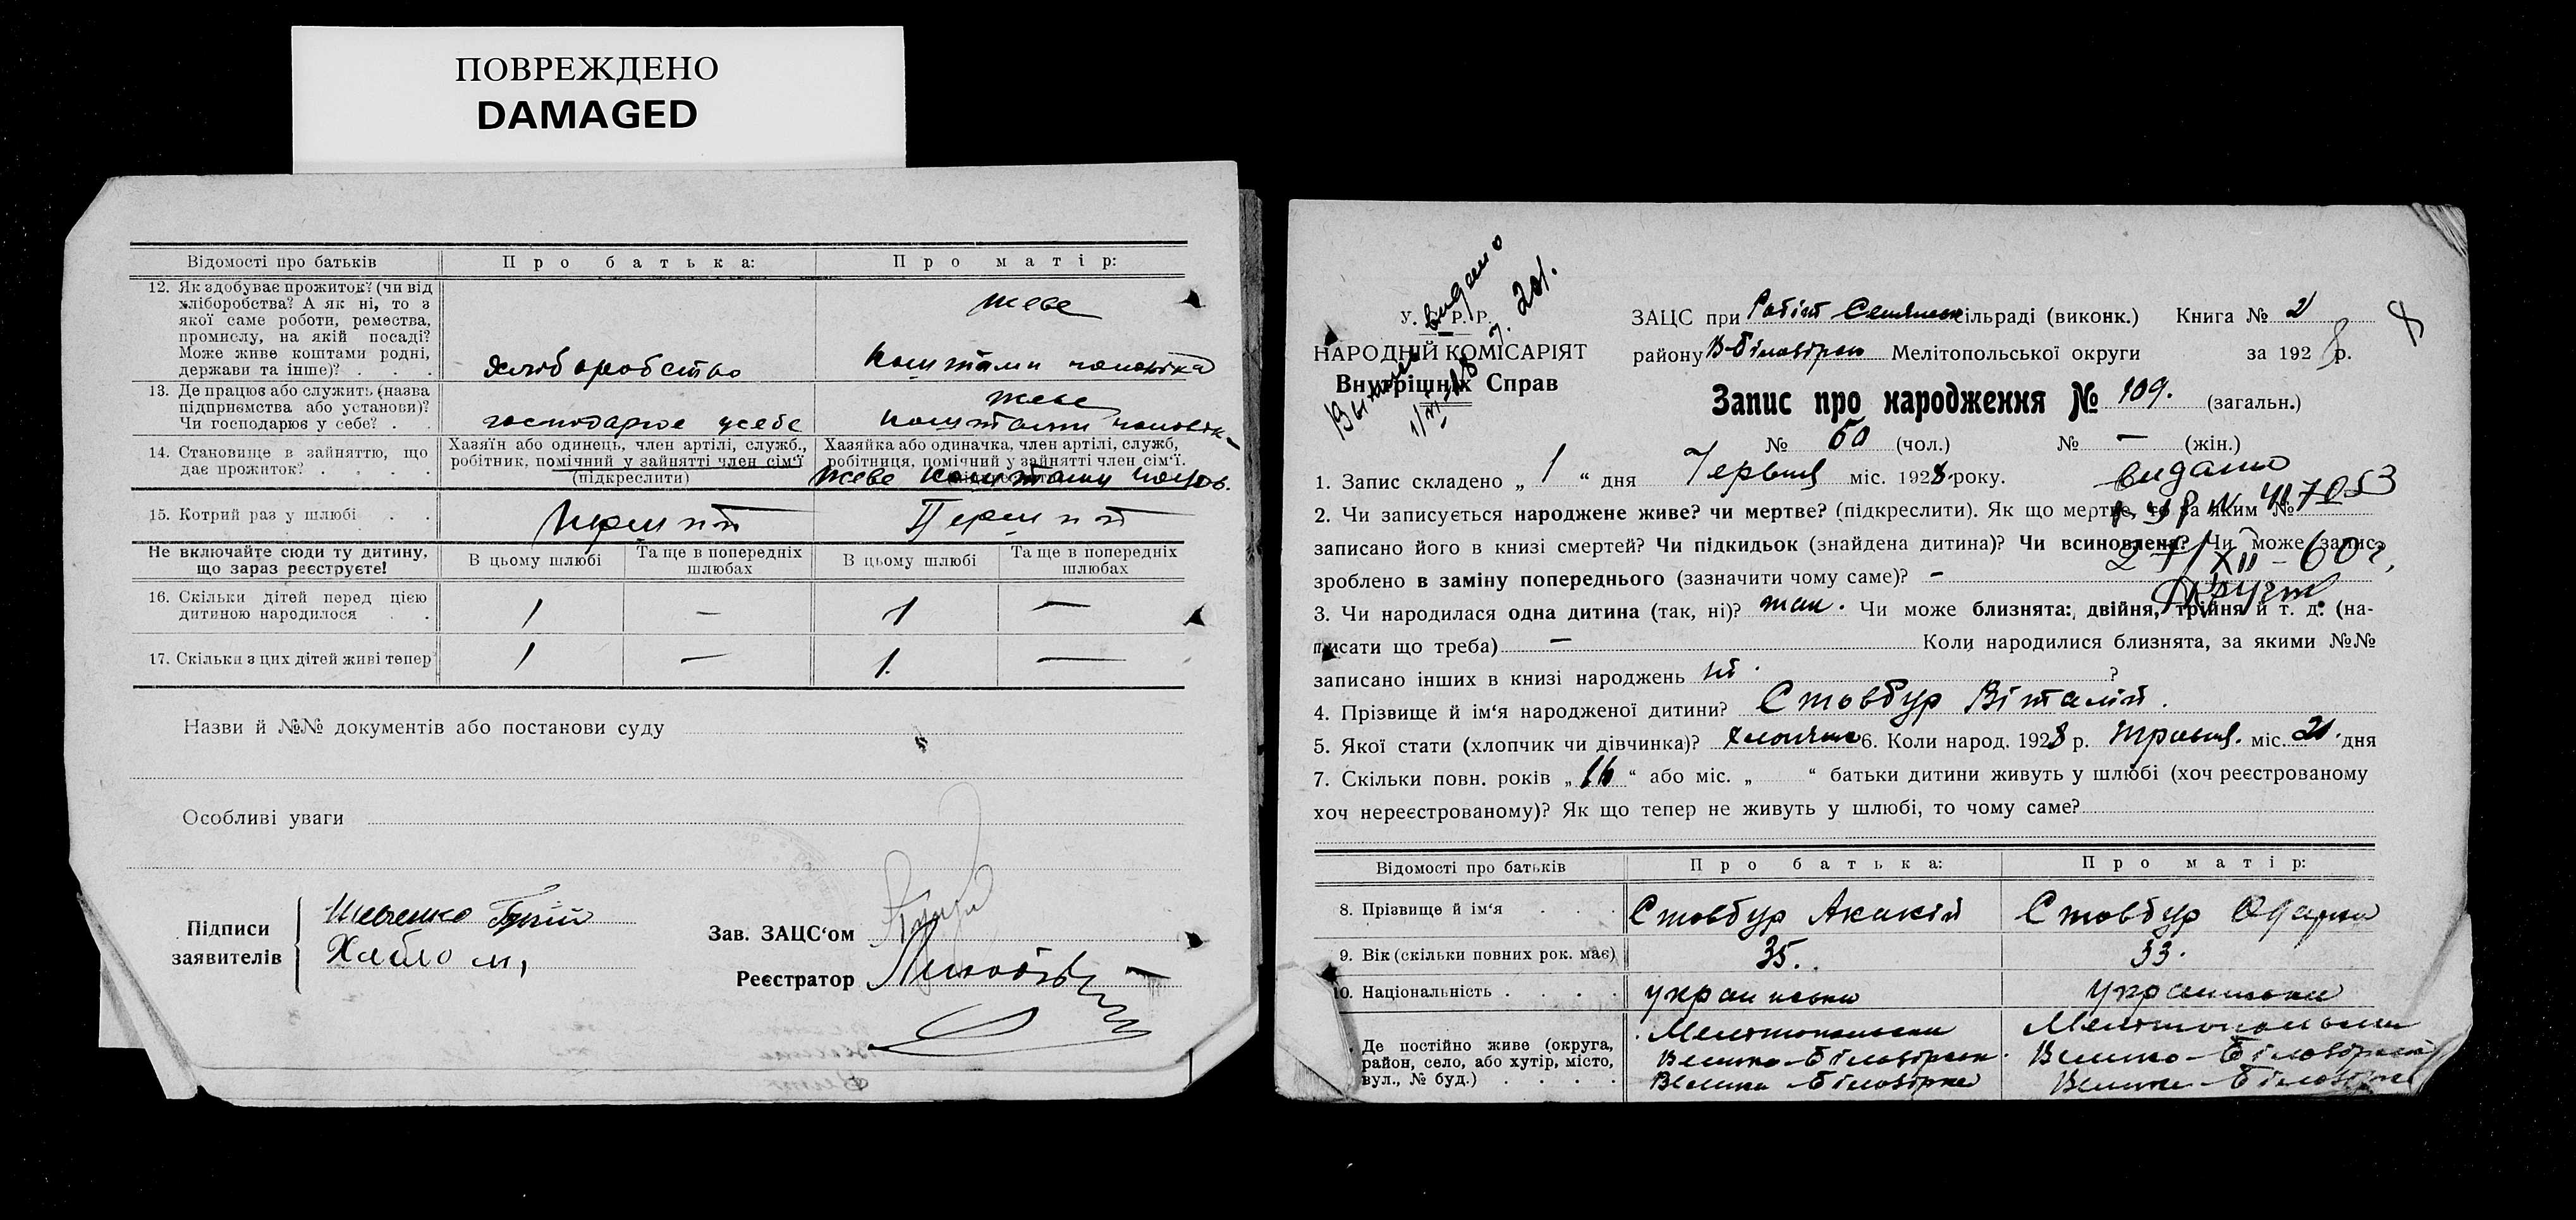 ПОВРЕЖДЕНО
DAMAGED
Відомості про батьків Про батька: Про матір:
12. Як здобуває прожиток? (чи від хліборобства? А як ні, то з якої саме роботи, ремества, промислу, на якій посаді? Може живе коштами родні, держави та інше)? . . . хліборобство живе коштами чоловіка
13. Де працює або служить (назва підприємства або установи)? Чи господарює у себе? . . господарює у себе живе коштами чоловік
14. Становище в зайняттю, що дає прожиток? . . . . Хазяїн або одинець, член артілі, служб., робітник, помічний у зайнятті член сім'ї (підкреслити) Хазяйка або одиначка, член артілі, служб, робітниця, помічний у зайнятті член сім'ї. живе коштами чолов.
15. Котрий раз у шлюбі . . Перший Перший
Не включайте сюди ту дитину, що зараз реєструєте! В цьому шлюбі Та ще в попередніх шлюбах В цьому шлюбі Та ще в попередніх шлюбах
16. Скільки дітей перед цією дитиною народилося . . 1 — 1 —
17. Скільки з цих дітей живі тепер 1 — 1. —
Назви й №№ документів або постанови суду
Особливі уваги
Підписи заявителів
Шевченко
Хябло м,
Зав. ЗАЦС'ом
Реєстратор
видано
У. С. Р. Р.
НАРОДНІЙ КОМІСАРІЯТ
Внутрішніх Справ
ЗАЦС при Робіт Селянск сільраді (виконк.) Книга № 2
району В-Білозірськ Мелітопольської округи за 1928 р.
8
Запис про народження № 109. (загальн.)
№ 60 (чол.) № — (жін.)
1. Запис складено „ 1 “ дня Червня міс. 1928 року.
видано
2. Чи записується народжене живе? чи мертве? (підкреслити). Як що мертве, то за яким №
417053
записано його в книзі смертей? Чи підкидьок (знайдена дитина)? Чи всиновлена? Чи може запис
27/XII - 60 г.
зроблено в заміну попереднього (зазначити чому саме)? —
3. Чи народилася одна дитина (так, ні)? так. Чи може близнята: двійня, трійня й т. д. (на-
писати що треба) — Коли народилися близнята, за якими №№
записано інших в книзі народжень ні. ?
4. Прізвище й ім'я народженої дитини? Стовбур Віталій.
5. Якої стати (хлопчик чи дівчинка)? Хлопчик 6. Коли народ. 1928 р. травня. міс. 20. дня
7. Скільки повн. років „ 16 “ або міс. „ “ батьки дитини живуть у шлюбі (хоч реєстрованому
хоч нереєстрованому)? Як що тепер не живуть у шлюбі, то чому саме?
Відомості про батьків Про батька: Про матір:
8. Прізвище й ім'я . . . Стовбур Акакій Стовбур Одарка
9. Вік (скільки повних рок. має) 35. 33.
10. Національність . . . . українська українська
Де постійно живе (округа, район, село, або хутір, місто, вул., № буд.) . . . . Мелітопольськ Велико-Білозірськ. Велика-Білозірка Мелітопольськ Велико-Білозірськ Велика-Білозірка